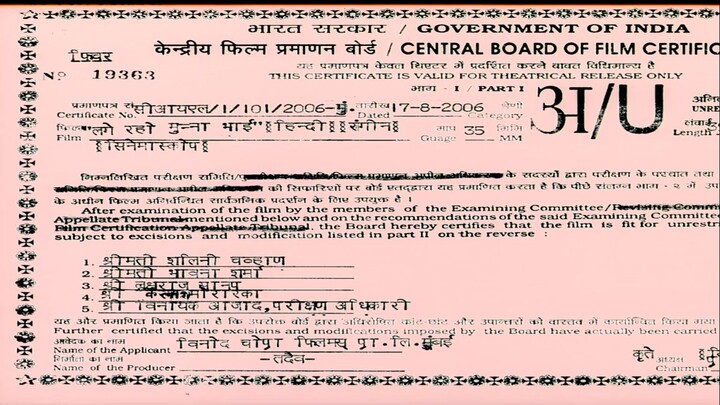 भारत सरकार / GOVERNMENT OF INDIA
केन्द्रीय फिल्म प्रमाणन बोर्ड / CENTRAL BOARD OF FILM CERTIFIC
फिचर
यह प्रमाणपत्र केवल थिएटर में प्रदर्शित करने बाबत विधिमान्य है
Nº 19363
THIS CERTIFICATE IS VALID FOR THEATRICAL RELEASE ONLY
भाग - I / PART I
प्रमाणपत्र सं सीआयएल/1/101/2006-मुं. तारीख 17-8-2006 श्रेणी अ/U अनि
Certificate No. Dated Category UNRE
फिल्म "लगे रहो मुन्ना भाई" हिन्दी रंगीन माप 35 मिमि लंबाई
Film Guage MM Length
सिनेमास्कोप
निम्नलिखित परीक्षण समिति/ के सदस्यों द्वारा परीक्षण के पश्चात तथा
की सिफारिशों पर बोर्ड एतद्द्वारा यह प्रमाणित करता है कि पीछे संलग्न भाग - २ में उ
के अधीन फिल्म अनिर्बन्धित सार्वजनिक प्रदर्शन के लिए उपयुक्त है ।
After examination of the film by the members of the Examining Committee/Revising Commit
Appellate Tribunal mentioned below and on the recommendations of the said Examining Committe
Film Certification Appellate Tribunal, the Board hereby certifies that the film is fit for unrestri
subject to excisions and modification listed in part II on the reverse :
1. श्रीमती शलिनी चव्हाण
2. श्रीमती भावना शर्मा
3. श्री
4. श्री
5. श्री विनायक आजाद,परीक्षण अधिकारी
यह और प्रमाणित किया जाता है कि उपरोक्त बोर्ड द्वारा अधिरोपित कांट-छांट और उपान्तरों को वास्तव में कार्यान्वित किया गया
Further certified that the excisions and modifications imposed by the Board have actually been carried
आवेदक का नाम विनोद चोपरा फिल्मस् प्रा.लि.मुंबई
Name of the Applicant
निर्माता का नाम -तदैव- कृते अध्यक्ष
Name of the Producer Chairman